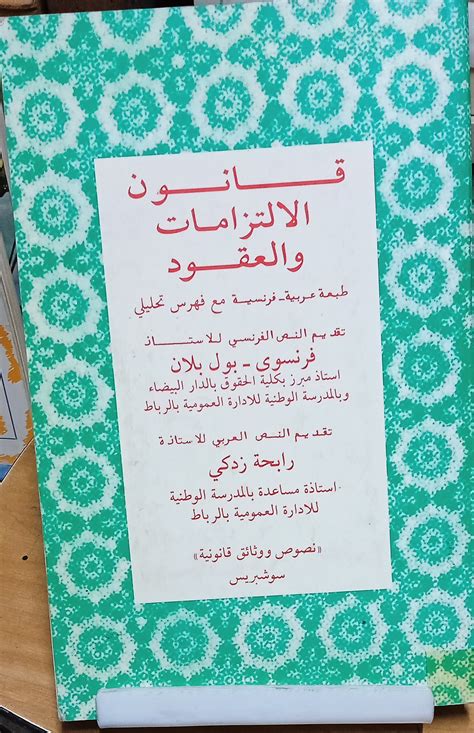 قانون
الالتزامات
والعقود
طبعة عربية - فرنسية مع فهرس تحليلي
تقديم النص الفرنسي للاستاذ
فرنسوى - بول بلان
استاذ مبرز بكلية الحقوق بالدار البيضاء
وبالمدرسة الوطنية للادارة العمومية بالرباط
تقديم النص العربي للاستاذة
رابحة زدكي
استاذة مساعدة بالمدرسة الوطنية
للادارة العمومية بالرباط
«نصوص ووثائق قانونية»
سوشبريس